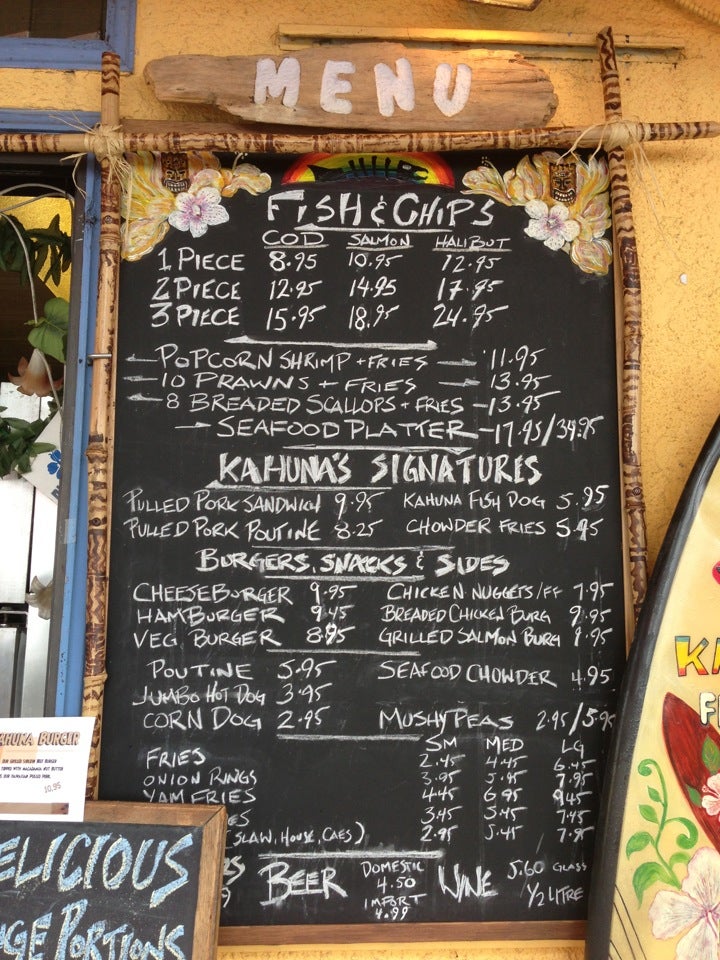 MENU
FISH & CHIPS
COD SALMON HALIBUT
1 PIECE 8.95 10.95 12.95
2 PIECE 12.95 14.95 17.95
3 PIECE 15.95 18.95 24.95
POPCORN SHRIMP + FRIES 11.95
10 PRAWNS + FRIES 13.95
8 BREADED SCALLOPS + FRIES - 13.95
SEAFOOD PLATTER - 17.95/34.95
KAHUNA'S SIGNATURES
PULLED PORK SANDWICH 9.95 KAHUNA FISH DOG 5.95
PULLED PORK POUTINE 8.25 CHOWDER FRIES 5.95
BURGERS, SNACKS & SIDES
CHEESEBURGER 9.95 CHICKEN NUGGETS/FF 7.95
HAMBURGER 9.45 BREADED CHICKEN BURG 9.95
VEG BURGER 8.95 GRILLED SALMON BURG 9.95
POUTINE 5.95 SEAFOOD CHOWDER 4.95
JUMBO HOT DOG 3.95
CORN DOG 2.95 MUSHY PEAS 2.95/5.95
SM MED LG
FRIES 2.45 4.45 6.45
ONION RINGS 3.95 5.95 7.95
YAM FRIES 4.45 6.95 9.45
ES 3.45 5.45 7.45
(SLAW, HOUSE, CAES) 2.95 5.45 7.95
BEER DOMESTIC 4.50 WINE 5.60 GLASS
IMPORT 4.99 1/2 LITRE
AHUNA BURGER
10.95
ELICIOUS
GE PORTIONS
KA
F